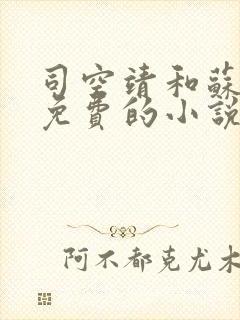 司空靖和蘇
免費的小說
阿不都克尤木